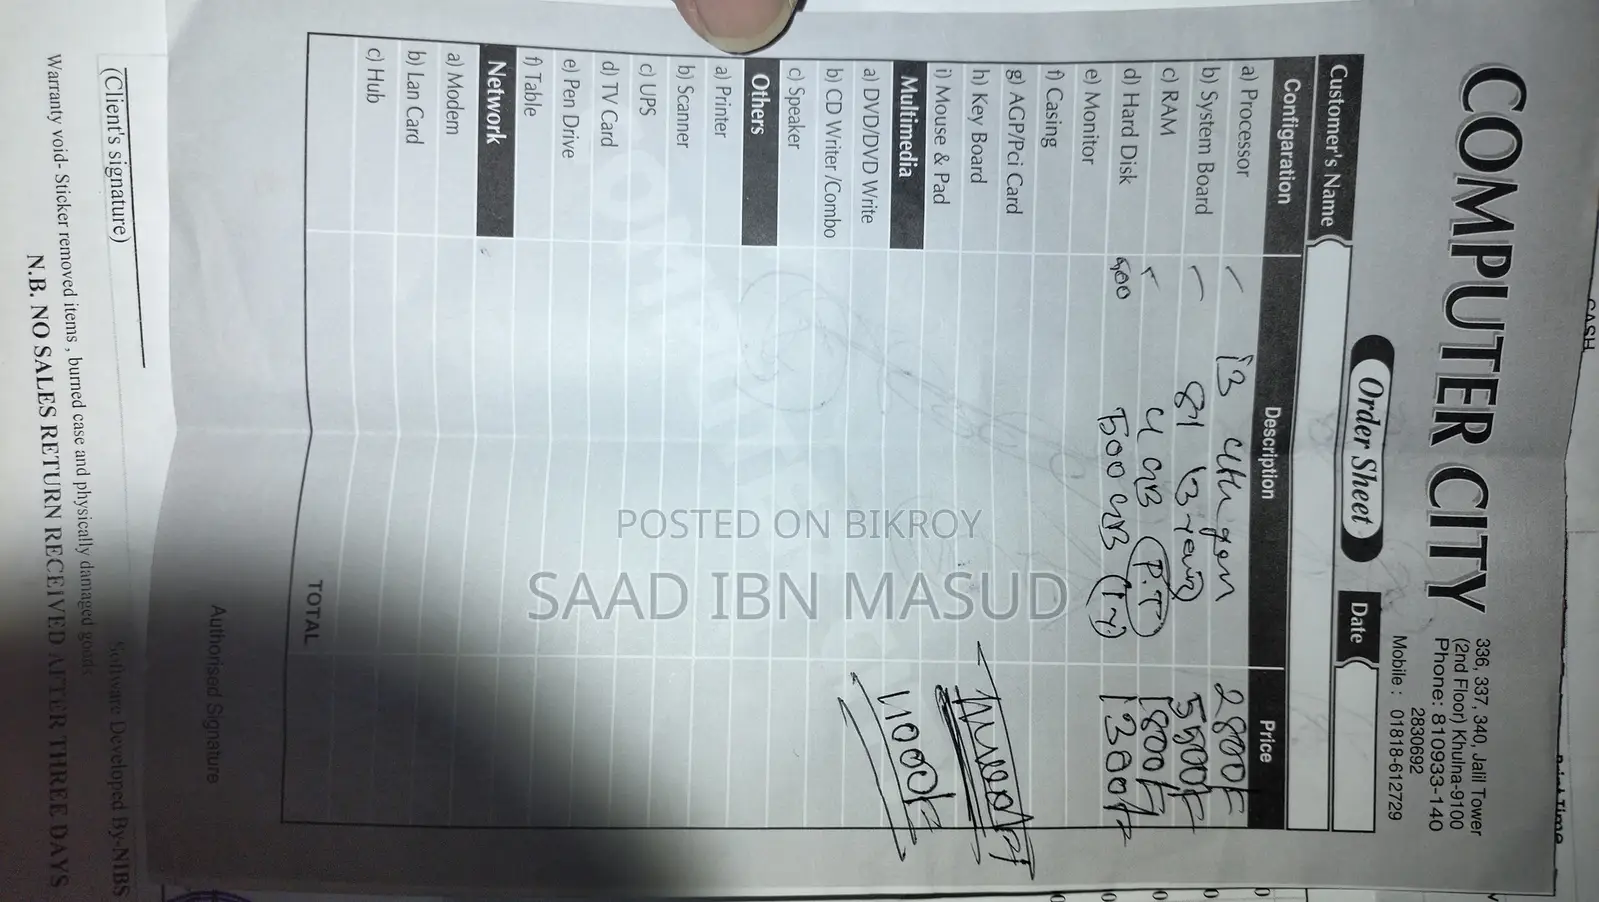 COMPUTER CITY
336, 337, 340, Jalil Tower
(2nd Floor) Khulna-9100
Phone: 810933-140
2830692
Mobile : 01818-612729
Order Sheet
Date
Customer's Name
Configaration Description Price
a) Processor i3 4th gen 2800/=
b) System Board 81 (3 year) 5500/=
c) RAM 4 GB (P.T) 1800/=
d) Hard Disk 500 500 GB (1-Y) 1300/=
e) Monitor
f) Casing
g) AGP/Pci Card
h) Key Board
i) Mouse & Pad
Multimedia
a) DVD/DVD Write
b) CD Writer /Combo
11000/=
c) Speaker
Others
a) Printer
b) Scanner
c) UPS
d) TV Card
e) Pen Drive
f) Table
Network
a) Modem
b) Lan Card
c) Hub
TOTAL
Authorised Signature
(Client's signature)
Software Developed By-NIBS
Warranty void- Sticker removed items , burned case and physically damaged goods
N.B. NO SALES RETURN RECEIVED AFTER THREE DAYS
CASH
Print Time
POSTED ON BIKROY
SAAD IBN MASUD